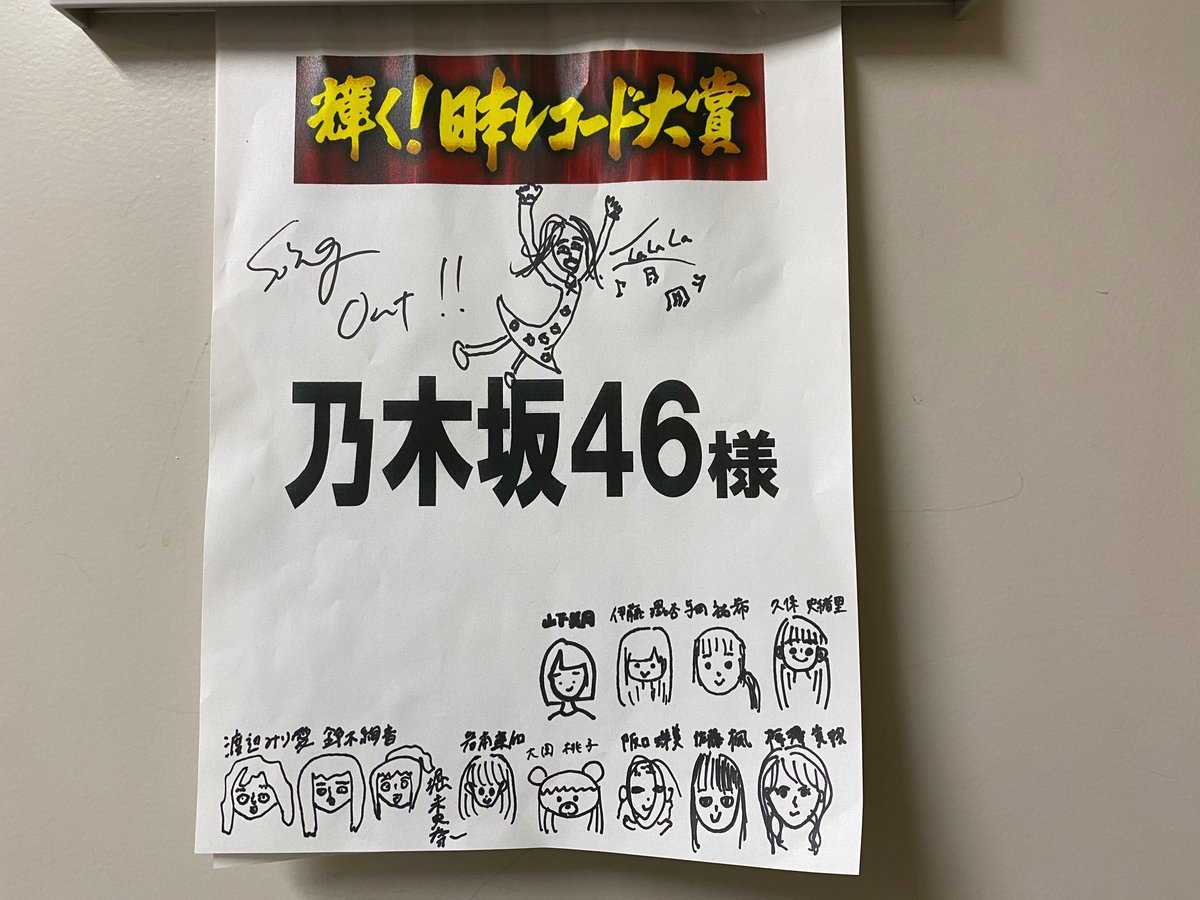 輝く!日本レコード大賞
Sing
Out!!
LaLaLa
乃木坂46様
山下美月
伊藤理々杏
与田祐希
久保史緒里
渡辺みり愛
鈴木絢音
堀未央奈
岩本蓮加
大園桃子
阪口珠美
佐藤楓
梅澤美波